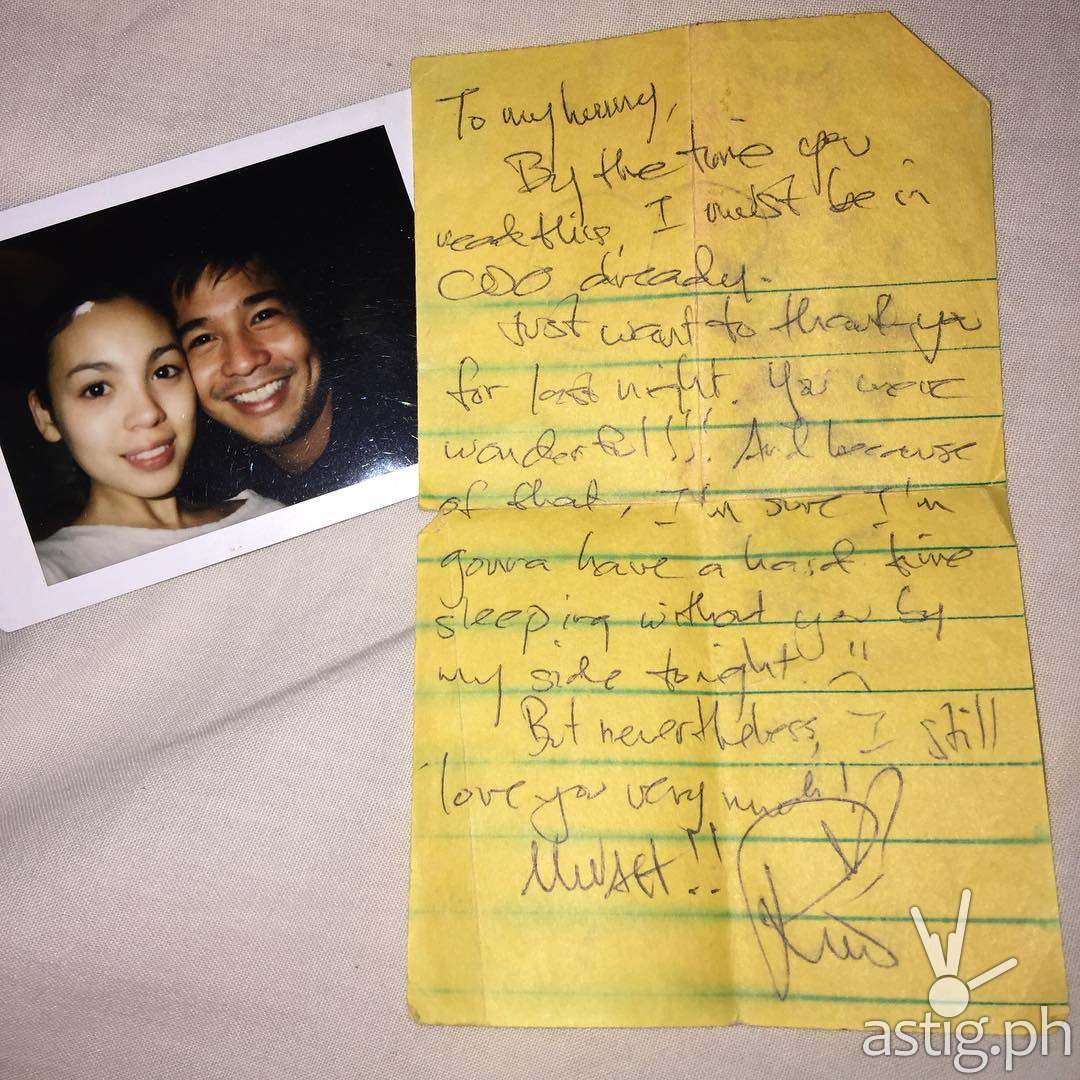 To my hunny,
By the time you
read this, I must be in
CDO already.
Just want to thank you
for last night. You were
wonderful!!!! And because
of that, I'm sure I'm
gonna have a hard time
sleeping without you by
my side tonight!
But nevertheless, I still
love you very much!
!!
astig.ph